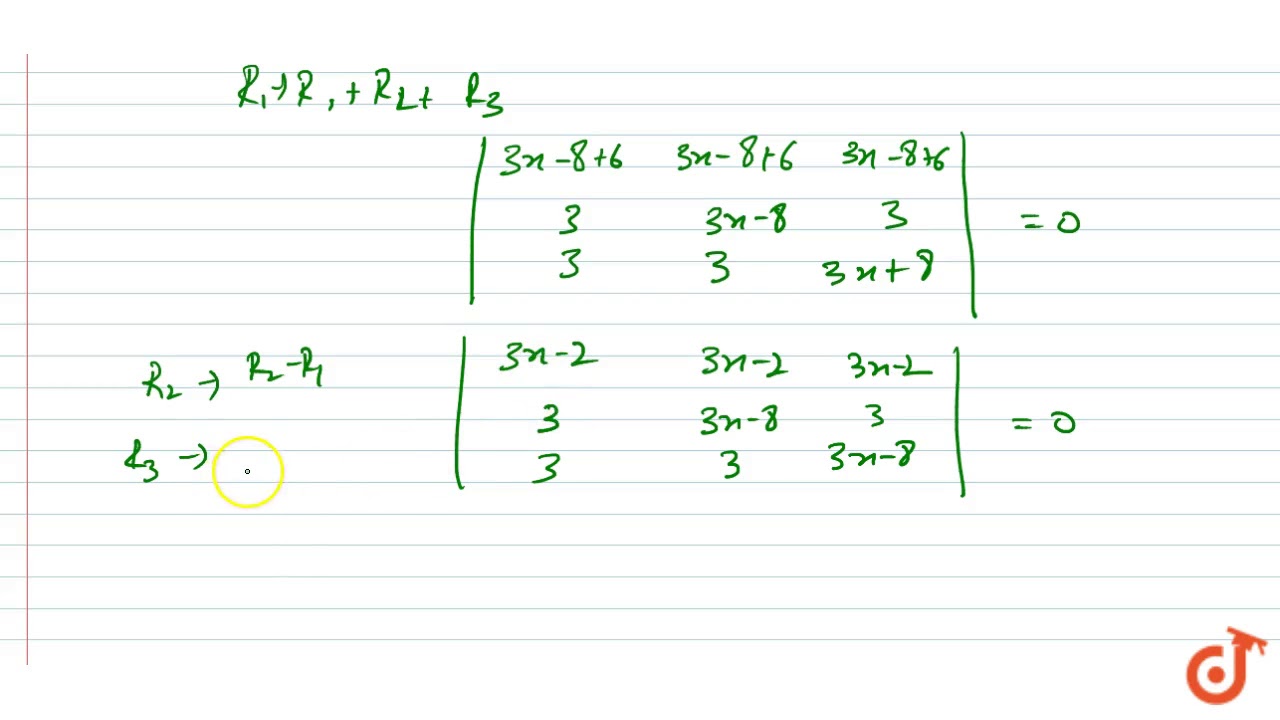 R₁→R₁+R₂+ R₃
| 3x-8+6 3x-8+6 3x-8+6 |
| 3 3x-8 3 | = 0
| 3 3 3x+8 |
R₂ → R₂-R₁ | 3x-2 3x-2 3x-2 |
| 3 3x-8 3 | = 0
R₃ → | 3 3 3x-8 |